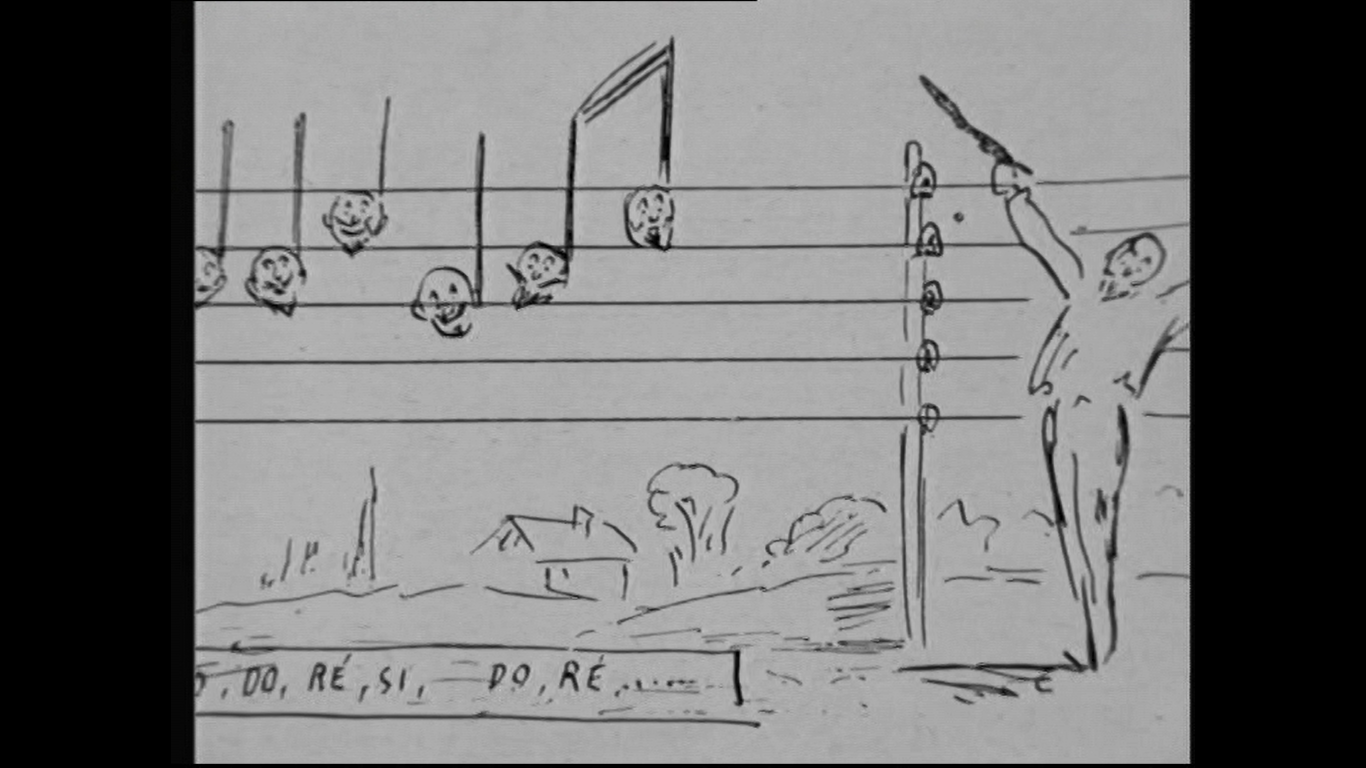 DO, RÉ, SI, DO, RÉ,......